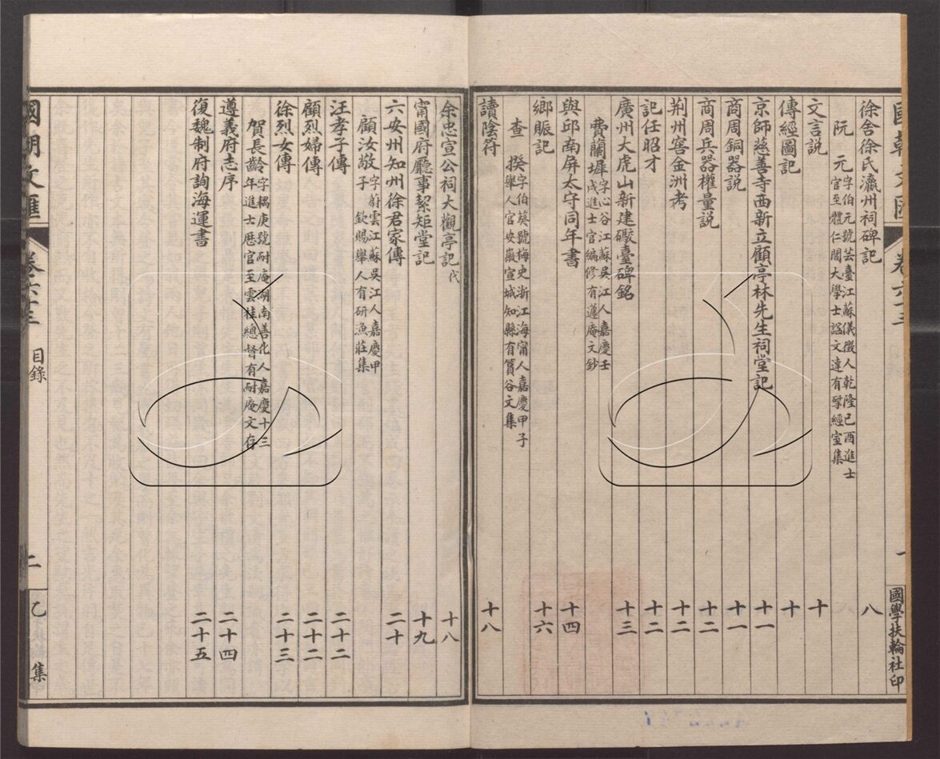 國朝文匯 卷六十三
一
國學扶輪社印
徐舍徐氏瀛州祠碑記 八
阮 元 字伯元號芸臺江蘇儀徵人乾隆己酉進士
官至體仁閣大學士諡文達有揅經室集
文言說 十
傳經圖記 十
京師慈善寺西新立顧亭林先生祠堂記 十一
商周銅器說 十一
商周兵器權量說 十二
荆州窖金洲考 十二
記任昭才 十二
廣州大虎山新建礮臺碑銘 十三
費蘭墀 字心谷江蘇吳江人嘉慶壬
戌進士官編修有遵庵文鈔
與邱南屏太守同年書 十四
鄉賑記 十六
查 揆 字伯葵號梅史浙江海甯人嘉慶甲子
舉人官安徽宣城知縣有篔谷文集
讀陰符 十八
余忠宣公祠大觀亭記 代 十八
甯國府廳事絜矩堂記 十九
六安州知州徐君家傳 二十
顧汝敬 字蔚雲江蘇吳江人嘉慶甲
子 欽賜舉人有研漁莊集
汪孝子傳 二十二
顧烈婦傳 二十二
徐烈女傳 二十三
賀長齡 字耦庚號耐庵湖南善化人嘉慶十三
年進士歷官至雲貴總督有耐庵文存
遵義府志序 二十四
復魏制府詢海運書 二十五
國朝文匯 卷六十三 目錄
二 乙 集